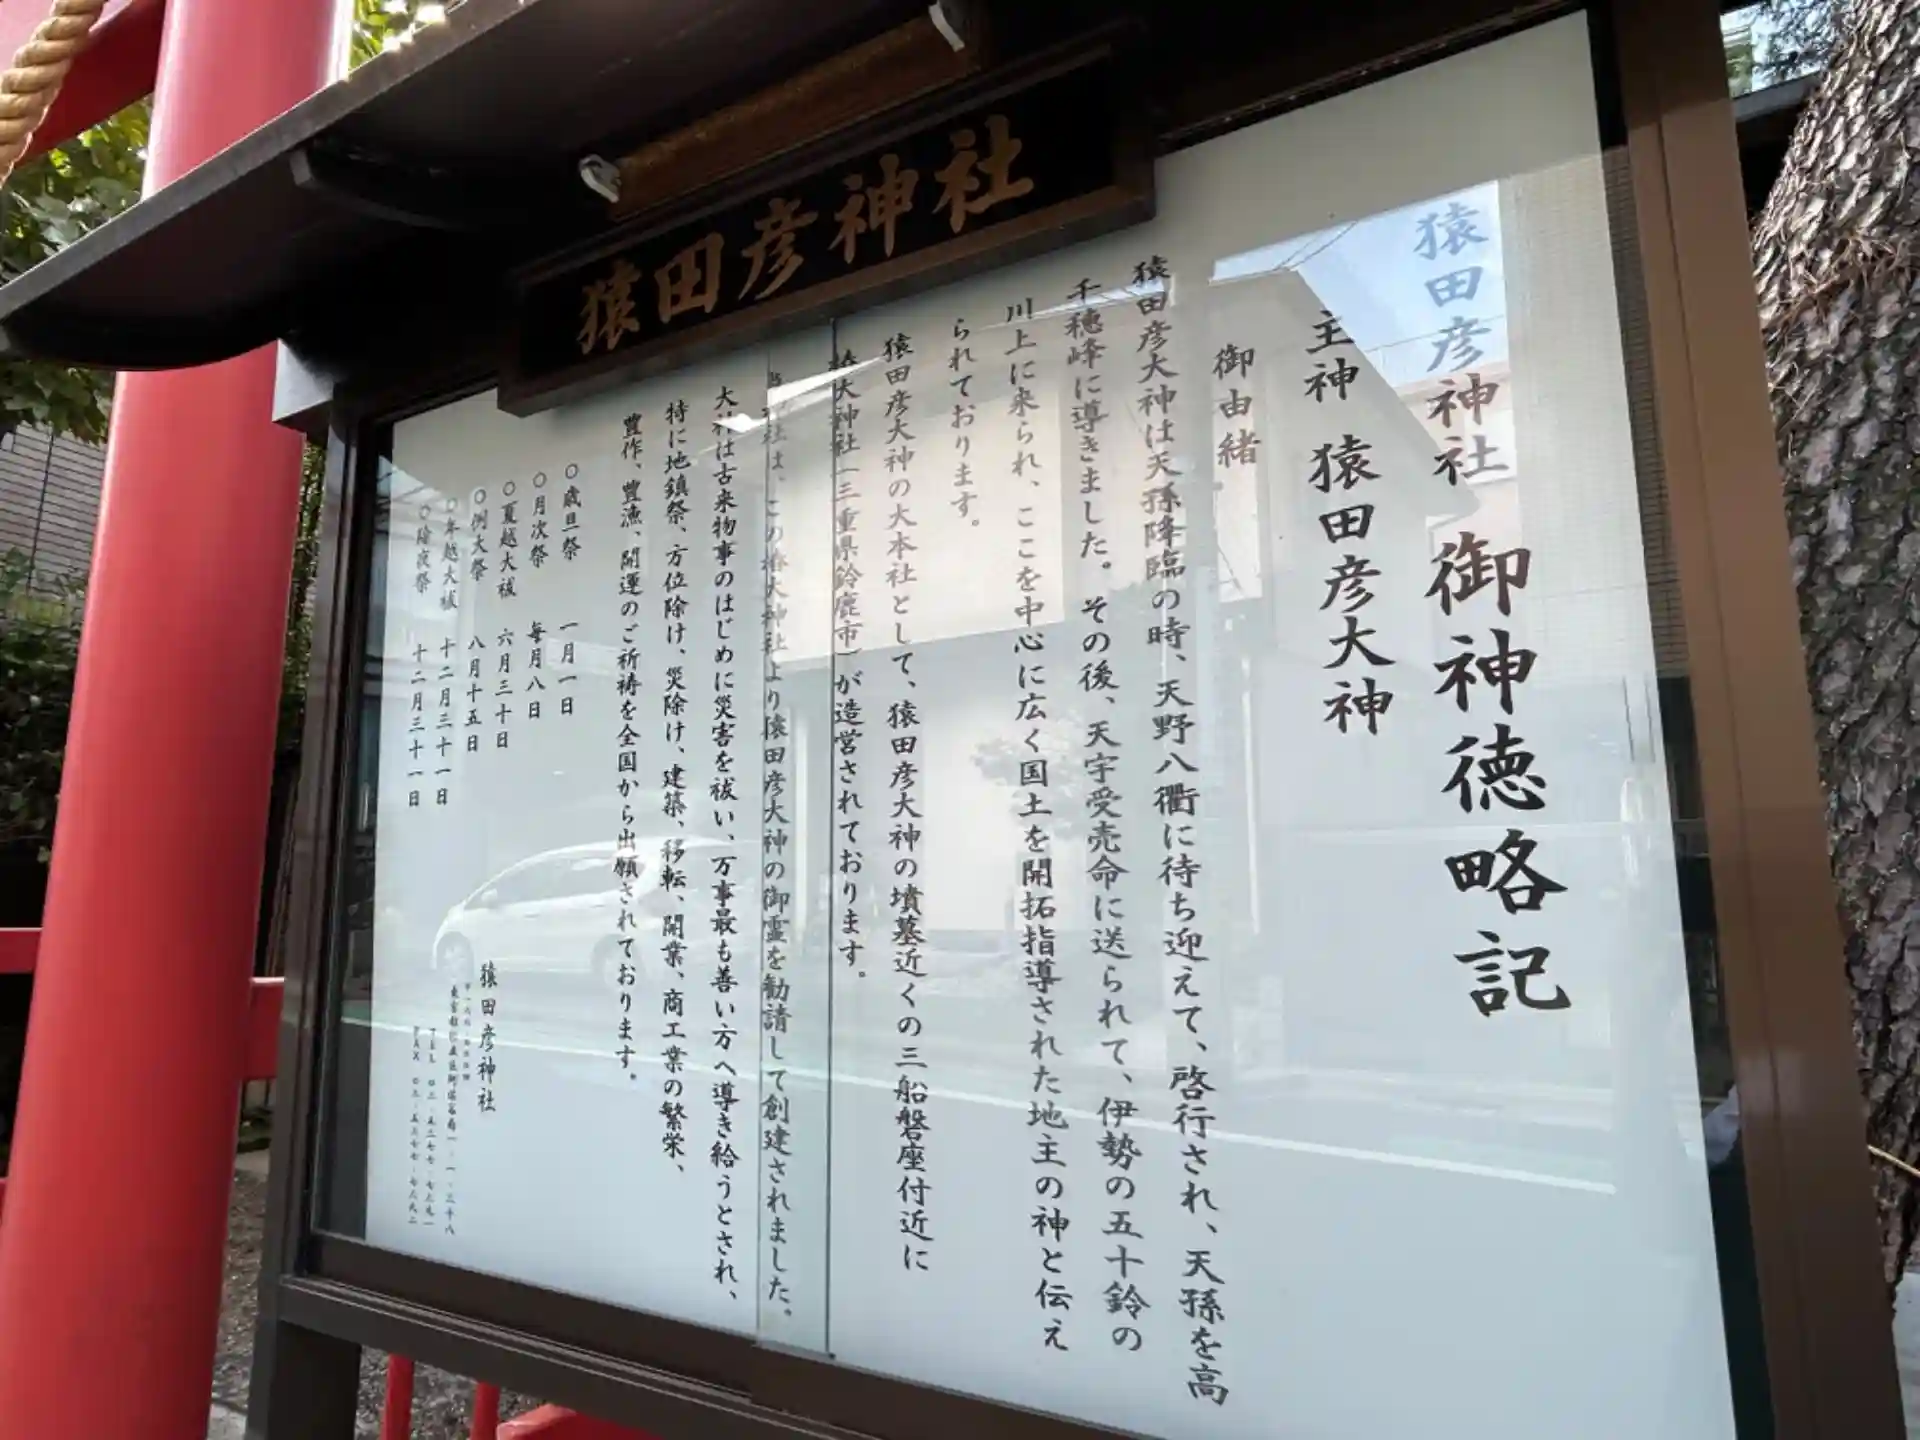 猿田彦神社
猿田彦神社 御神徳略記
主神 猿田彦大神
御由緒
猿田彦大神は天孫降臨の時、天野八衢に待ち迎えて、啓行され、天孫を高
千穂峰に導きました。その後、天宇受売命に送られて、伊勢の五十鈴の
川上に来られ、ここを中心に広く国土を開拓指導された地主の神と伝え
られております。
猿田彦大神の大本社として、猿田彦大神の墳墓近くの三船磐座付近に
椿大神社(三重県鈴鹿市)が造営されております。
社は、この椿大神社より猿田彦大神の御霊を勧請して創建されました。
大神は古来物事のはじめに災害を祓い、万事最も善い方へ導き給うとされ、
特に地鎮祭、方位除け、災除け、建築、移転、開業、商工業の繁栄、
豊作、豊漁、開運のご祈祷を全国から出願されております。
○歳旦祭 一月一日
○月次祭 毎月八日
○夏越大祓 六月三十日
○例大祭 八月十五日
○年越大祓 十二月三十一日
○除夜祭 十二月三十一日
猿田彦神社
TEL
FAX